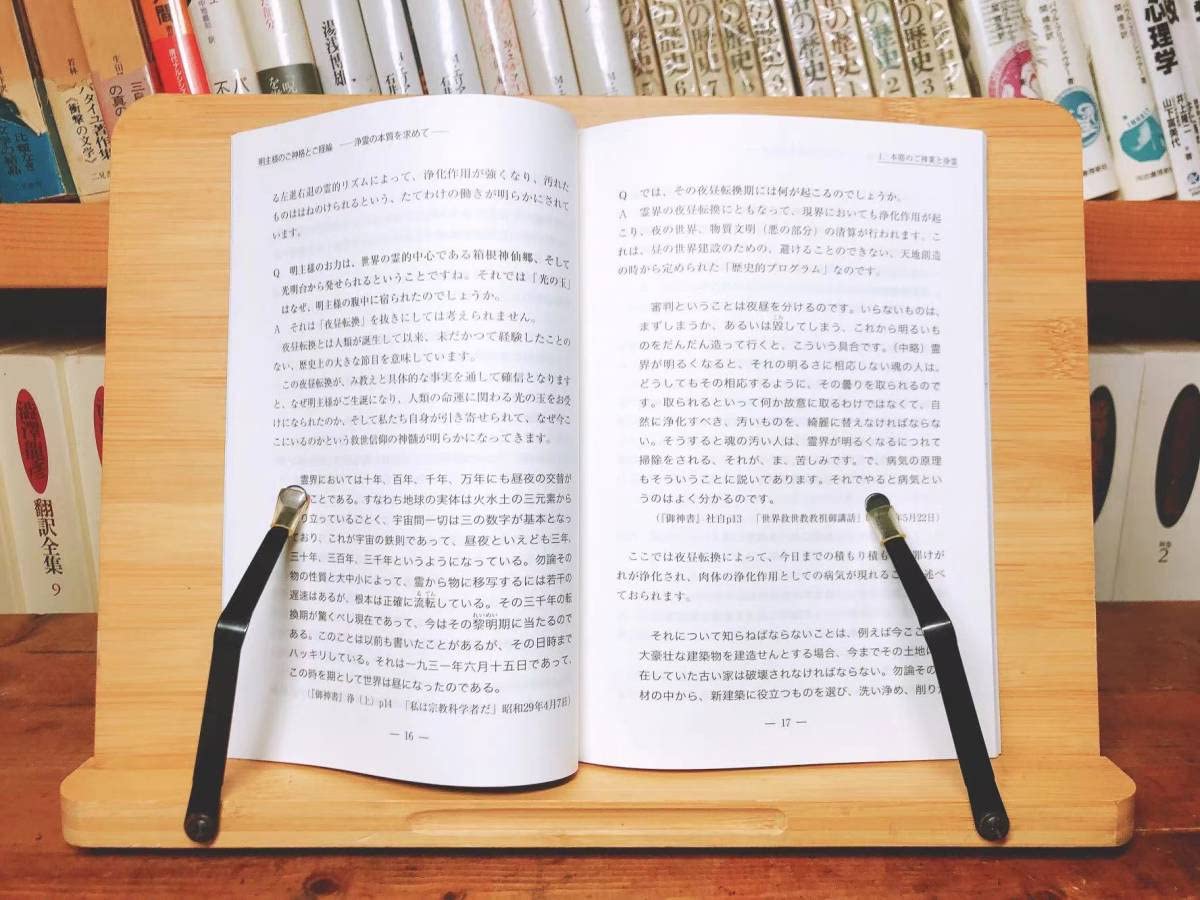 湯浅博雄
若林
《衝撃の文学》
バタイユ著作集
の歴史 5
の歴史 6
の歴史 7
の歴史
の歴史
の歴史
の歴史 2
の歴史 3
心理学
井上隆二
山下富美代
明主様のご神格とご経綸 ――浄霊の本質を求めて――
る左進右退の霊的リズムによって、浄化作用が強くなり、汚れた
ものははねのけられるという、たてわけの働きが明らかにされて
います。
Q 明主様のお力は、世界の霊的中心である箱根神仙郷、そして
光明台から発せられるということですね。それでは「光の玉」
はなぜ、明主様の腹中に宿られたのでしょうか。
A それは「夜昼転換」を抜きにしては考えられません。
夜昼転換とは人類が誕生して以来、未だかつて経験したことの
ない、歴史上の大きな節目を意味しています。
この夜昼転換が、み教えと具体的な事実を通して確信となります
と、なぜ明主様がご生誕になり、人類の命運に関わる光の玉をお受
けになられたのか、そして私たち自身が引き寄せられて、なぜ今こ
こにいるのかという救世信仰の神髄が明らかになってきます。
霊界においては十年、百年、千年、万年にも昼夜の交替が
ことである。すなわち地球の実体は火水土の三元素から
り立っているごとく、宇宙間一切は三の数字が基本となっ
ており、これが宇宙の鉄則であって、昼夜といえども三年、
三十年、三百年、三千年というようになっている。勿論その
物の性質と大中小によって、霊から物に移写するには若干の
遅速はあるが、根本は正確に流転している。その三千年の転
換期が驚くべし現在であって、今はその黎明期に当るので
ある。このことは以前も書いたことがあるが、その日時まで
ハッキリしている。それは一九三一年六月十五日であって、
この時を期として世界は昼になったのである。
(『御神書』浄(上)p14 「私は宗教科学者だ」昭和29年4月7日)
― 16 ―
1. 本筋のご神業と浄霊
Q では、その夜昼転換期には何が起こるのでしょうか。
A 霊界の夜昼転換にともなって、現界においても浄化作用が起
こり、夜の世界、物質文明(悪の部分)の清算が行われます。こ
れは、昼の世界建設のための、避けることのできない、天地創造
の時から定められた「歴史的プログラム」なのです。
審判ということは夜昼を分けるのです。いらないものは、
まずしまうか、あるいは毀してしまう、これから明るいも
のをだんだん造って行くと、こういう具合です。(中略)霊
界が明るくなると、それの明るさに相応しない魂の人は。
どうしてもその相応するように、その曇りを取られるので
す。取られるといって何か故意に取るわけではなくて、自
然に浄化すべき、汚いものを、綺麗に替えなければならな
い。そうすると魂の汚い人は、霊界が明るくなるにつれて
掃除をされる、それが、ま、苦しみです。で、病気の原理
もそういうことに説いてあります。それでやると病気とい
うのはよく分かるのです。
(『御神書』社白p13 「世界救世教教祖御講話」 年5月22日)
ここでは夜昼転換によって、今日までの積もり積も 罪けが
れが浄化され、肉体の浄化作用としての病気が現れるこ 述べ
ておられます。
それについて知らねばならないことは、例えば今ここ
大豪壮な建築物を建造せんとする場合、今までその土地に
在していた古い家は破壊されなければならない。勿論その
材の中から、新建築に役立つものを選び、洗い浄め、削り
― 17 ―
澁澤龍彦
翻訳全集
9
2